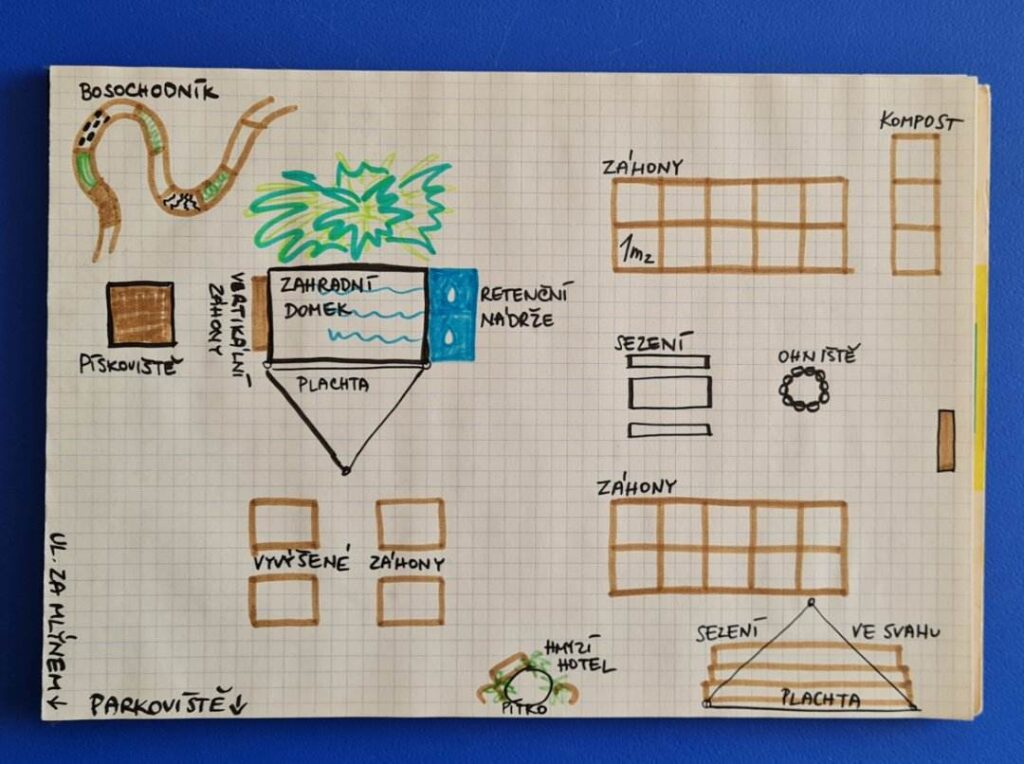 BOSOCHODNÍK
KOMPOST
ZÁHONY
1m2
ZAHRADNÍ
DOMEK
VERTIKÁLNÍ
ZÁHONY
RETENČNÍ
NÁDRŽE
PÍSKOVIŠTĚ
PLACHTA
SEZENÍ
OHNIŠTĚ
ZÁHONY
VYVÝŠENÉ ZÁHONY
UL. ZA MLÝNEM ↓
PARKOVIŠTĚ ↓
HMYZÍ
HOTEL
PÍTKO
SEZENÍ VE SVAHU
PLACHTA